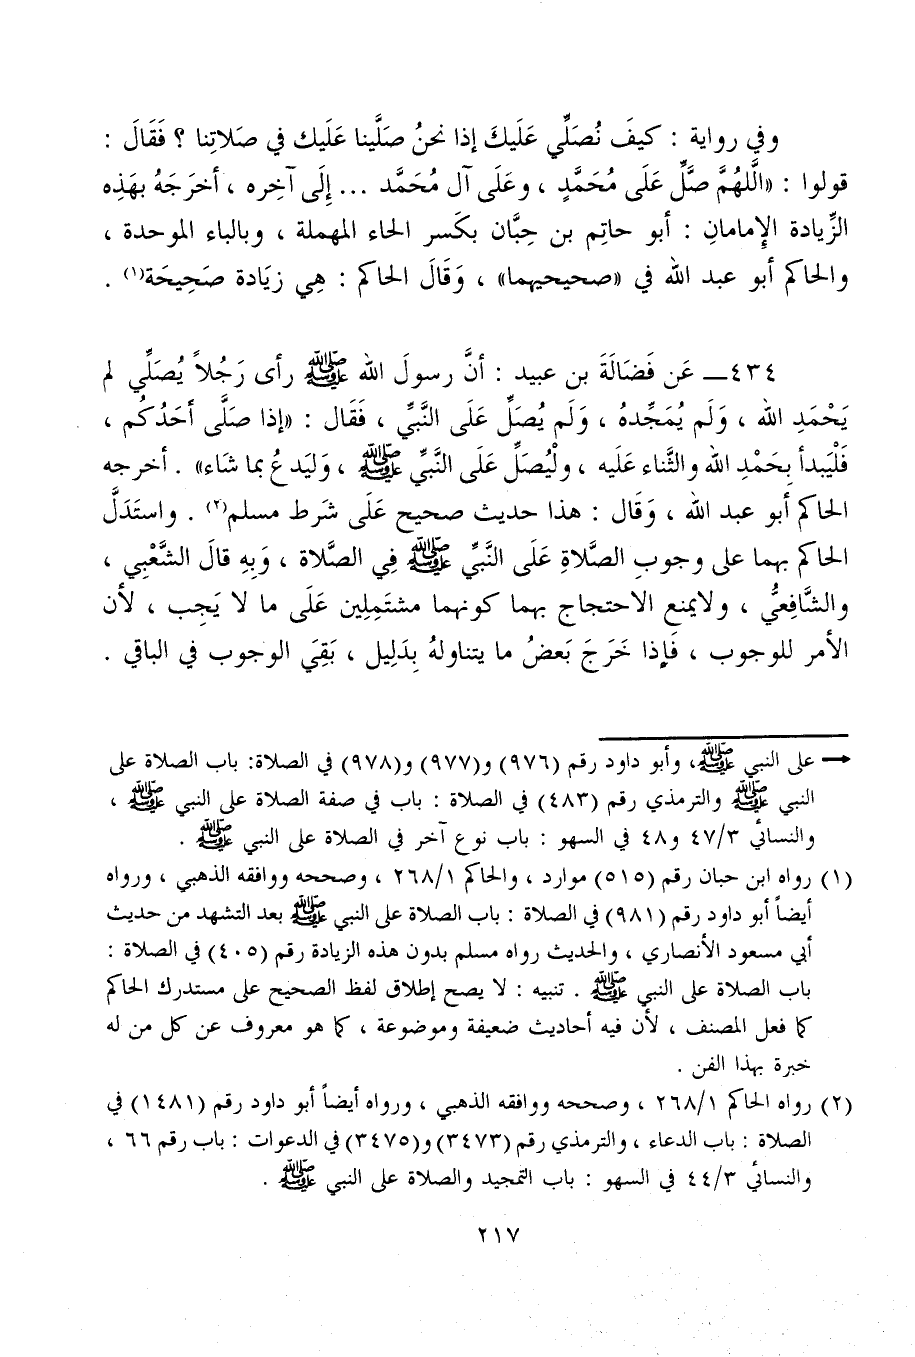 وفي رواية : كيفَ نُصَلِّي عَلَيكَ إذا نحنُ صَلَّينا عَلَيك في صَلاتِنا ؟ فَقَالَ :
قولوا : «الَّلهُمَّ صَلِّ عَلَى مُحَمَّدٍ ، وعَلَى آل مُحَمَّد ... إلَى آخِره ، أخرَجَهُ بهَذِه
الزِّيادة الإمامانِ : أبو حاتِم بن حِبَّان بكَسر الحاء المهملة ، وبالباء الموحدة ،
والحاكم أبو عبد الله في «صحيحيهما» ، وَقَالَ الحاكم : هِي زيَادة صَحِيحَة(١) .
٤٣٤ـ عَن فَضَالَةَ بن عبيد : أنَّ رسولَ الله ﷺ رأى رَجُلاً يُصَلِّي لم
يَحْمَدِ الله ، وَلَم يُمَجِّدهُ ، وَلَم يُصَلِّ عَلَى النَّبيِّ ، فَقَال : «إذا صَلَّى أحَدُكُم ،
فَلْيَبدأ بِحَمْدِ الله والثَّناء عَلَيه ، ولْيُصَلِّ عَلَى النَّبيِّ ﷺ ، وَليَدعُ بما شَاء» . أخرجه
الحاكم أبو عبد الله ، وَقَال : هذا حديث صحيح عَلَى شَرط مسلم(٢) . واستَدَلَّ
الحاكم بهما على وجوبِ الصَّلاةِ عَلَى النَّبيِّ ﷺ فِي الصَّلاة ، وَبِهِ قالَ الشَّعْبِي ،
والشَّافِعيُّ ، ولايمنع الاحتجاج بهما كونهما مشتَمِلِين عَلَى ما لا يَجِب ، لأن
الأمر للوجوب ، فَإذا خَرَجَ بَعضُ ما يتناولهُ بِدَلِيل ، بَقِيَ الوجوب في الباقي .
← على النبي ﷺ، وأبو داود رقم (٩٧٦) و(٩٧٧) و(٩٧٨) في الصلاة: باب الصلاة على
النبي ﷺ والترمذي رقم (٤٨٣) في الصلاة : باب في صفة الصلاة على النبي ﷺ ،
والنسائي ٤٧/٣ و٤٨ في السهو : باب نوع آخر في الصلاة على النبي ﷺ .
(١) رواه ابن حبان رقم (٥١٥) موارد ، والحاكم ٢٦٨/١ ، وصححه ووافقه الذهبي ، ورواه
أيضاً أبو داود رقم (٩٨١) في الصلاة : باب الصلاة على النبي ﷺ بعد التشهد من حديث
أبي مسعود الأنصاري ، والحديث رواه مسلم بدون هذه الزيادة رقم (٤٠٥) في الصلاة :
باب الصلاة على النبي ﷺ . تنبيه : لا يصح إطلاق لفظ الصحيح على مستدرك الحاكم
كما فعل المصنف ، لأن فيه أحاديث ضعيفة وموضوعة ، كما هو معروف عن كل من له
خبرة بهذا الفن .
(٢) رواه الحاكم ٢٦٨/١ ، وصححه ووافقه الذهبي ، ورواه أيضاً أبو داود رقم (١٤٨١) في
الصلاة : باب الدعاء ، والترمذي رقم (٣٤٧٣) و(٣٤٧٥) في الدعوات : باب رقم ٦٦ ،
والنسائي ٤٤/٣ في السهو : باب التمجيد والصلاة على النبي ﷺ .
٢١٧